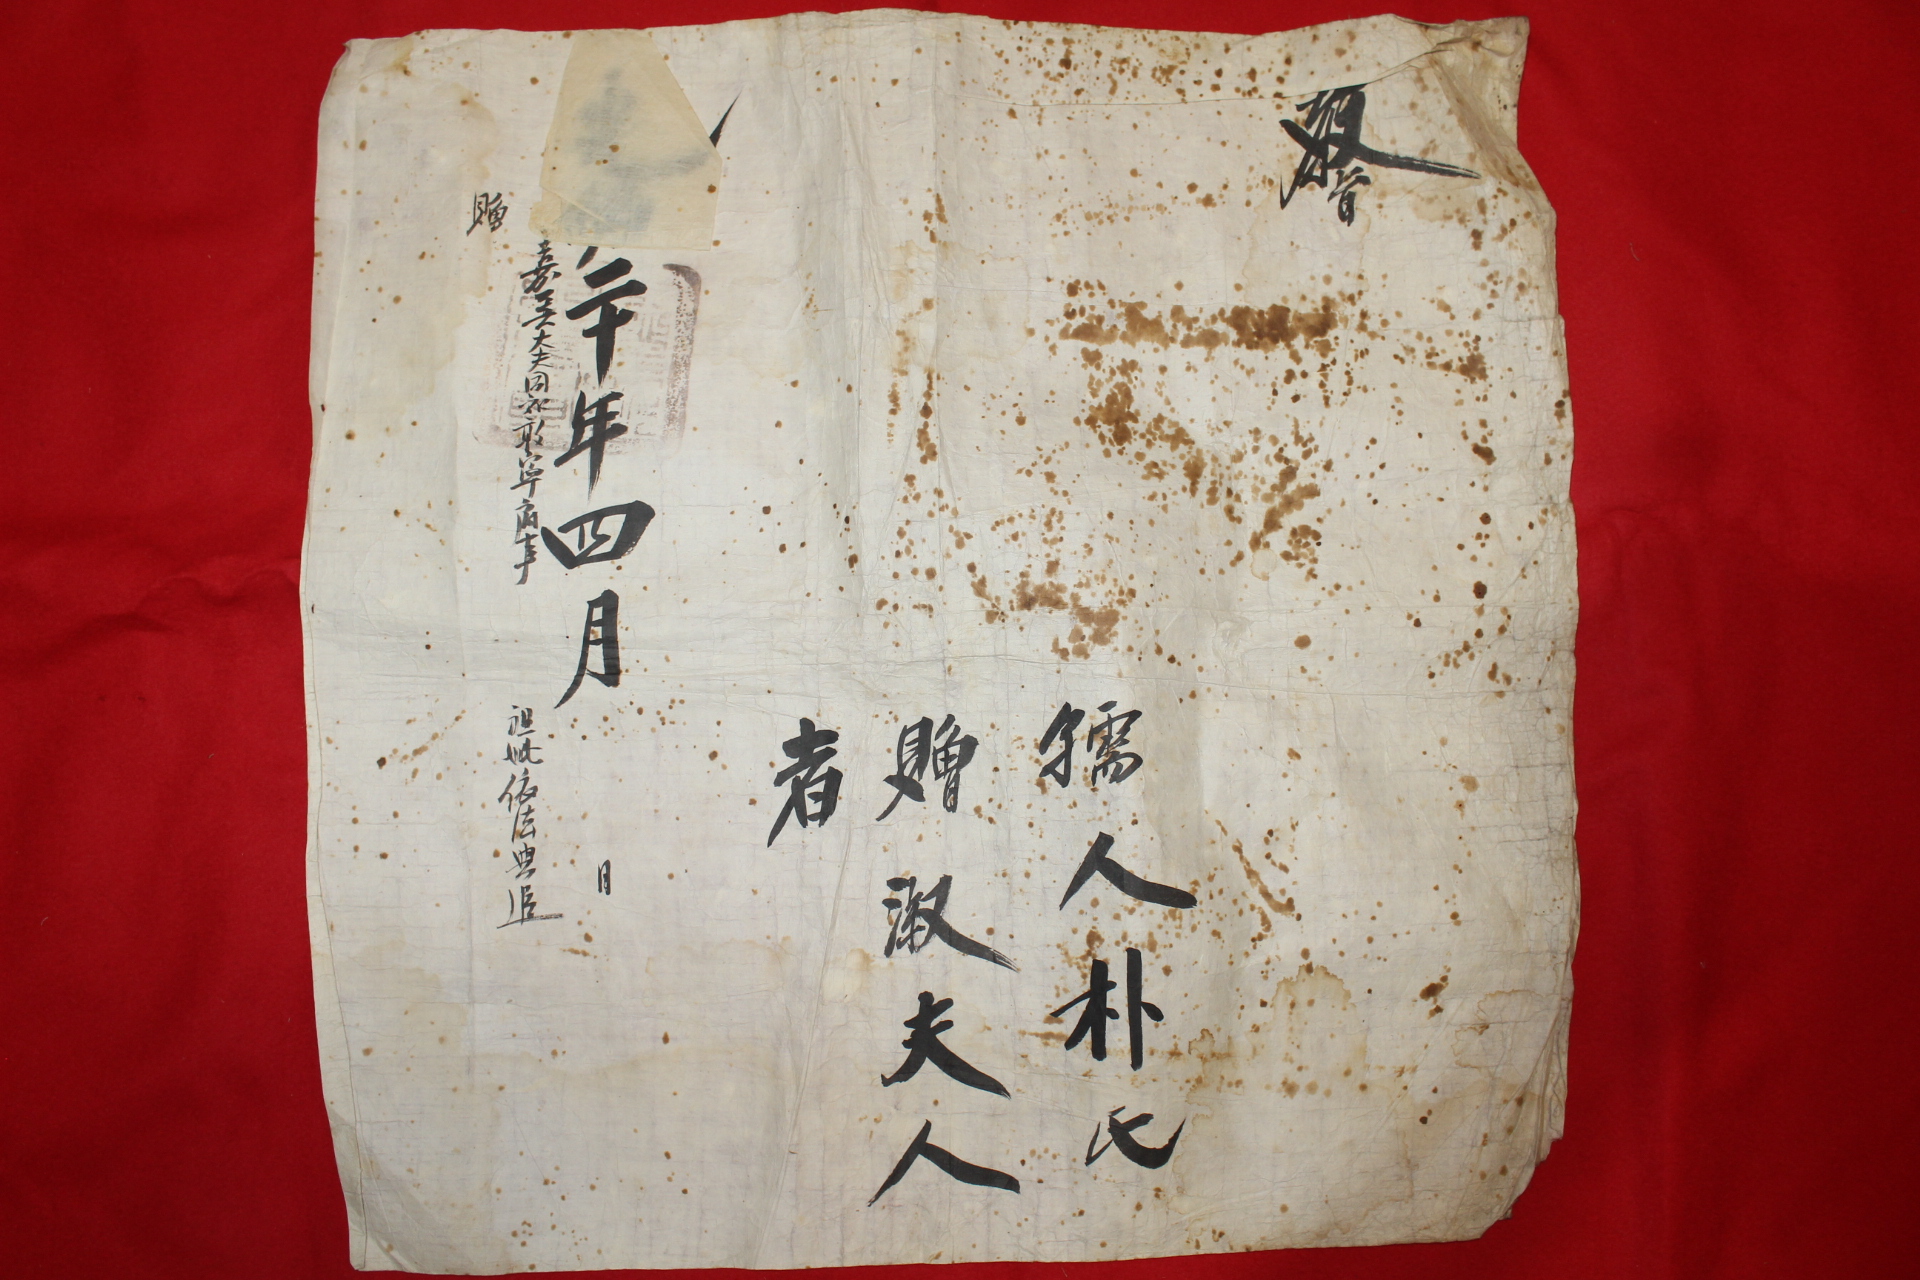 敎旨
孺人朴氏
贈淑夫人
者
二十年四月 日
嘉善大夫同知敦寧府事 祖妣依法典追
贈